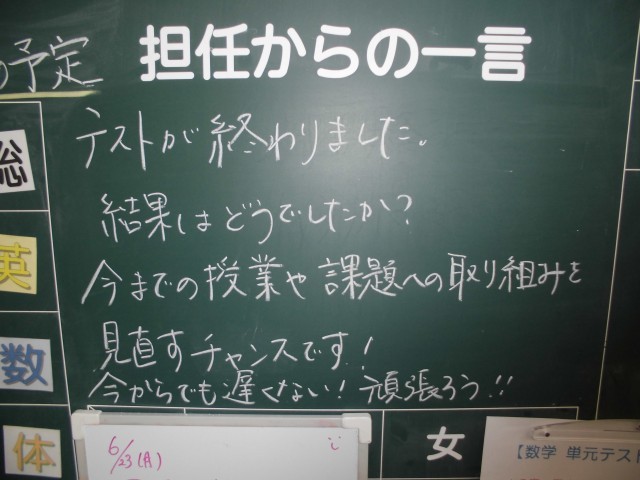 の予定
担任からの一言
テストが終わりました。
結果はどうでしたか?
今までの授業や課題への取り組みを
見直すチャンスです!
今からでも遅くない!頑張ろう!!
総
英
数
体
6/23(月)
女
【数学 単元テス